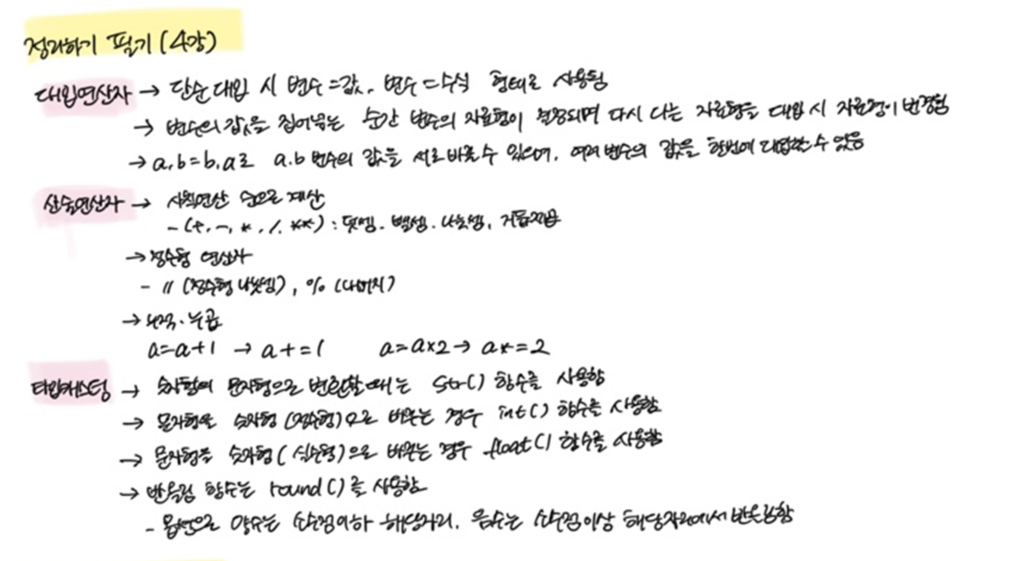 정리하기 필기 (4강)
대입연산자 → 단순대입 시 변수=값, 변수=수식 형태로 사용됨
→ 변수의 값을 집어넣는 순간 변수의 자료형이 결정되며 다시 다른 자료형을 대입 시 자료형이 변경됨
→ a,b=b,a로 a,b 변수의 값을 서로 바꿀 수 있으며, 여러 변수의 값을 한번에 대입할 수 있음
산술연산자 → 사칙연산 순으로 계산
- (+, -, *, /, **) : 덧셈, 뺄셈, 나눗셈, 거듭제곱
→ 정수형 연산자
- // (정수형 나눗셈), % (나머지)
→ 누적·누곱
a=a+1 → a+=1 a=a×2 → a*=2
타입캐스팅 → 숫자형에 문자형으로 변환할 때는 str() 함수를 사용함
→ 문자형을 숫자형(정수형)으로 바꾸는 경우 int() 함수를 사용함
→ 문자형을 숫자형(실수형)으로 바꾸는 경우 float() 함수를 사용함
→ 반올림 함수는 round()를 사용함
- 옵션으로 양수는 소수점이하 해당자리, 음수는 소수점이상 해당자리에서 반올림함